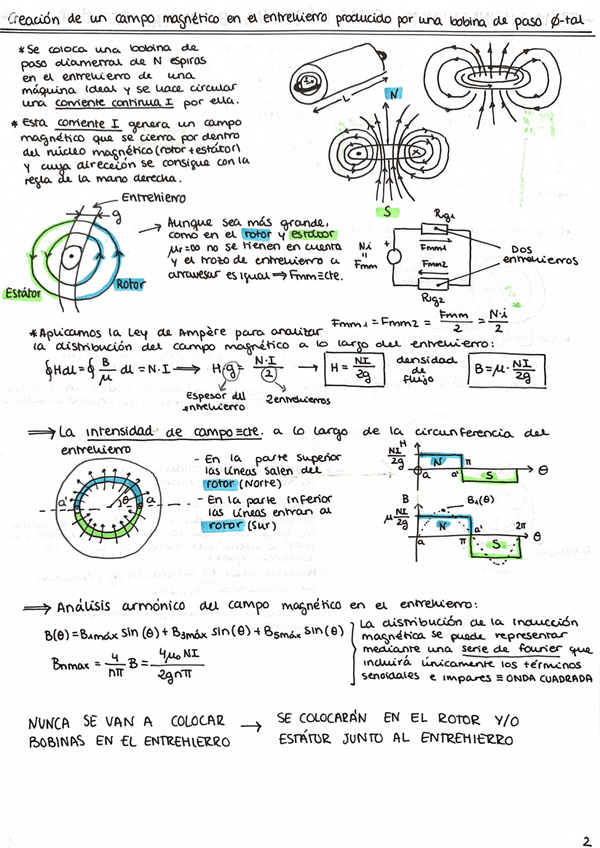 Creación de un campo magnético en el entrehierro producido por una bobina de paso ∅-tal
* Se coloca una bobina de
paso diametral de N espiras
en el entrehierro de una
máquina ideal y se hace circular
una corriente continua I por ella.
* Esta corriente I genera un campo
magnético que se cierra por dentro
del núcleo magnético (rotor+estátor)
y cuya dirección se consigue con la
regla de la mano derecha.
L
N
S
Entrehierro
g
Estátor
Rotor
→ Aunque sea más grande,
como en el rotor y estátor
μr=∞ no se tienen en cuenta
y el trozo de entrehierro a
atravesar es igual ⇒ Fmm≡cte.
Rig1
N.i
=
Fmm
+
Fmm1
Fmm2
Rig2
DOS
entrehierros
Fmm1 = Fmm2 = Fmm/2 = N·i/2
* Aplicamos la Ley de Ampère para analizar
la distribución del campo magnético a lo largo del entrehierro:
∮Hdl = ∮ B/μ dl = N·I → H·g = N·I/2 → H = NI/2g densidad de flujo B = μ· NI/2g
Espesor del
entrehierro
2 entrehierros
⇒ La intensidad de campo ≡ cte. a lo largo de la circunferencia del
entrehierro
a'
θ
a
- En la parte superior
las líneas salen del
rotor (Norte)
- En la parte inferior
las líneas entran al
rotor (Sur)
H
NI/2g
N
π
a
a'
S
θ
B
B1(θ)
μ NI/2g
N
a'
2π
a
π
S
θ
⇒ Análisis armónico del campo magnético en el entrehierro:
B(θ) = B1máx sin (θ) + B3máx sin(θ) + B5máx sin(θ)
Bnmax = 4/nπ B = 4μ0 NI/2gnπ
La distribución de la inducción
magnética se puede representar
mediante una serie de fourier que
incluirá únicamente los términos
senoidales e impares ≡ ONDA CUADRADA
NUNCA SE VAN A COLOCAR
BOBINAS EN EL ENTREHIERRO
→ SE COLOCARÁN EN EL ROTOR Y/O
ESTÁTOR JUNTO AL ENTREHIERRO
2